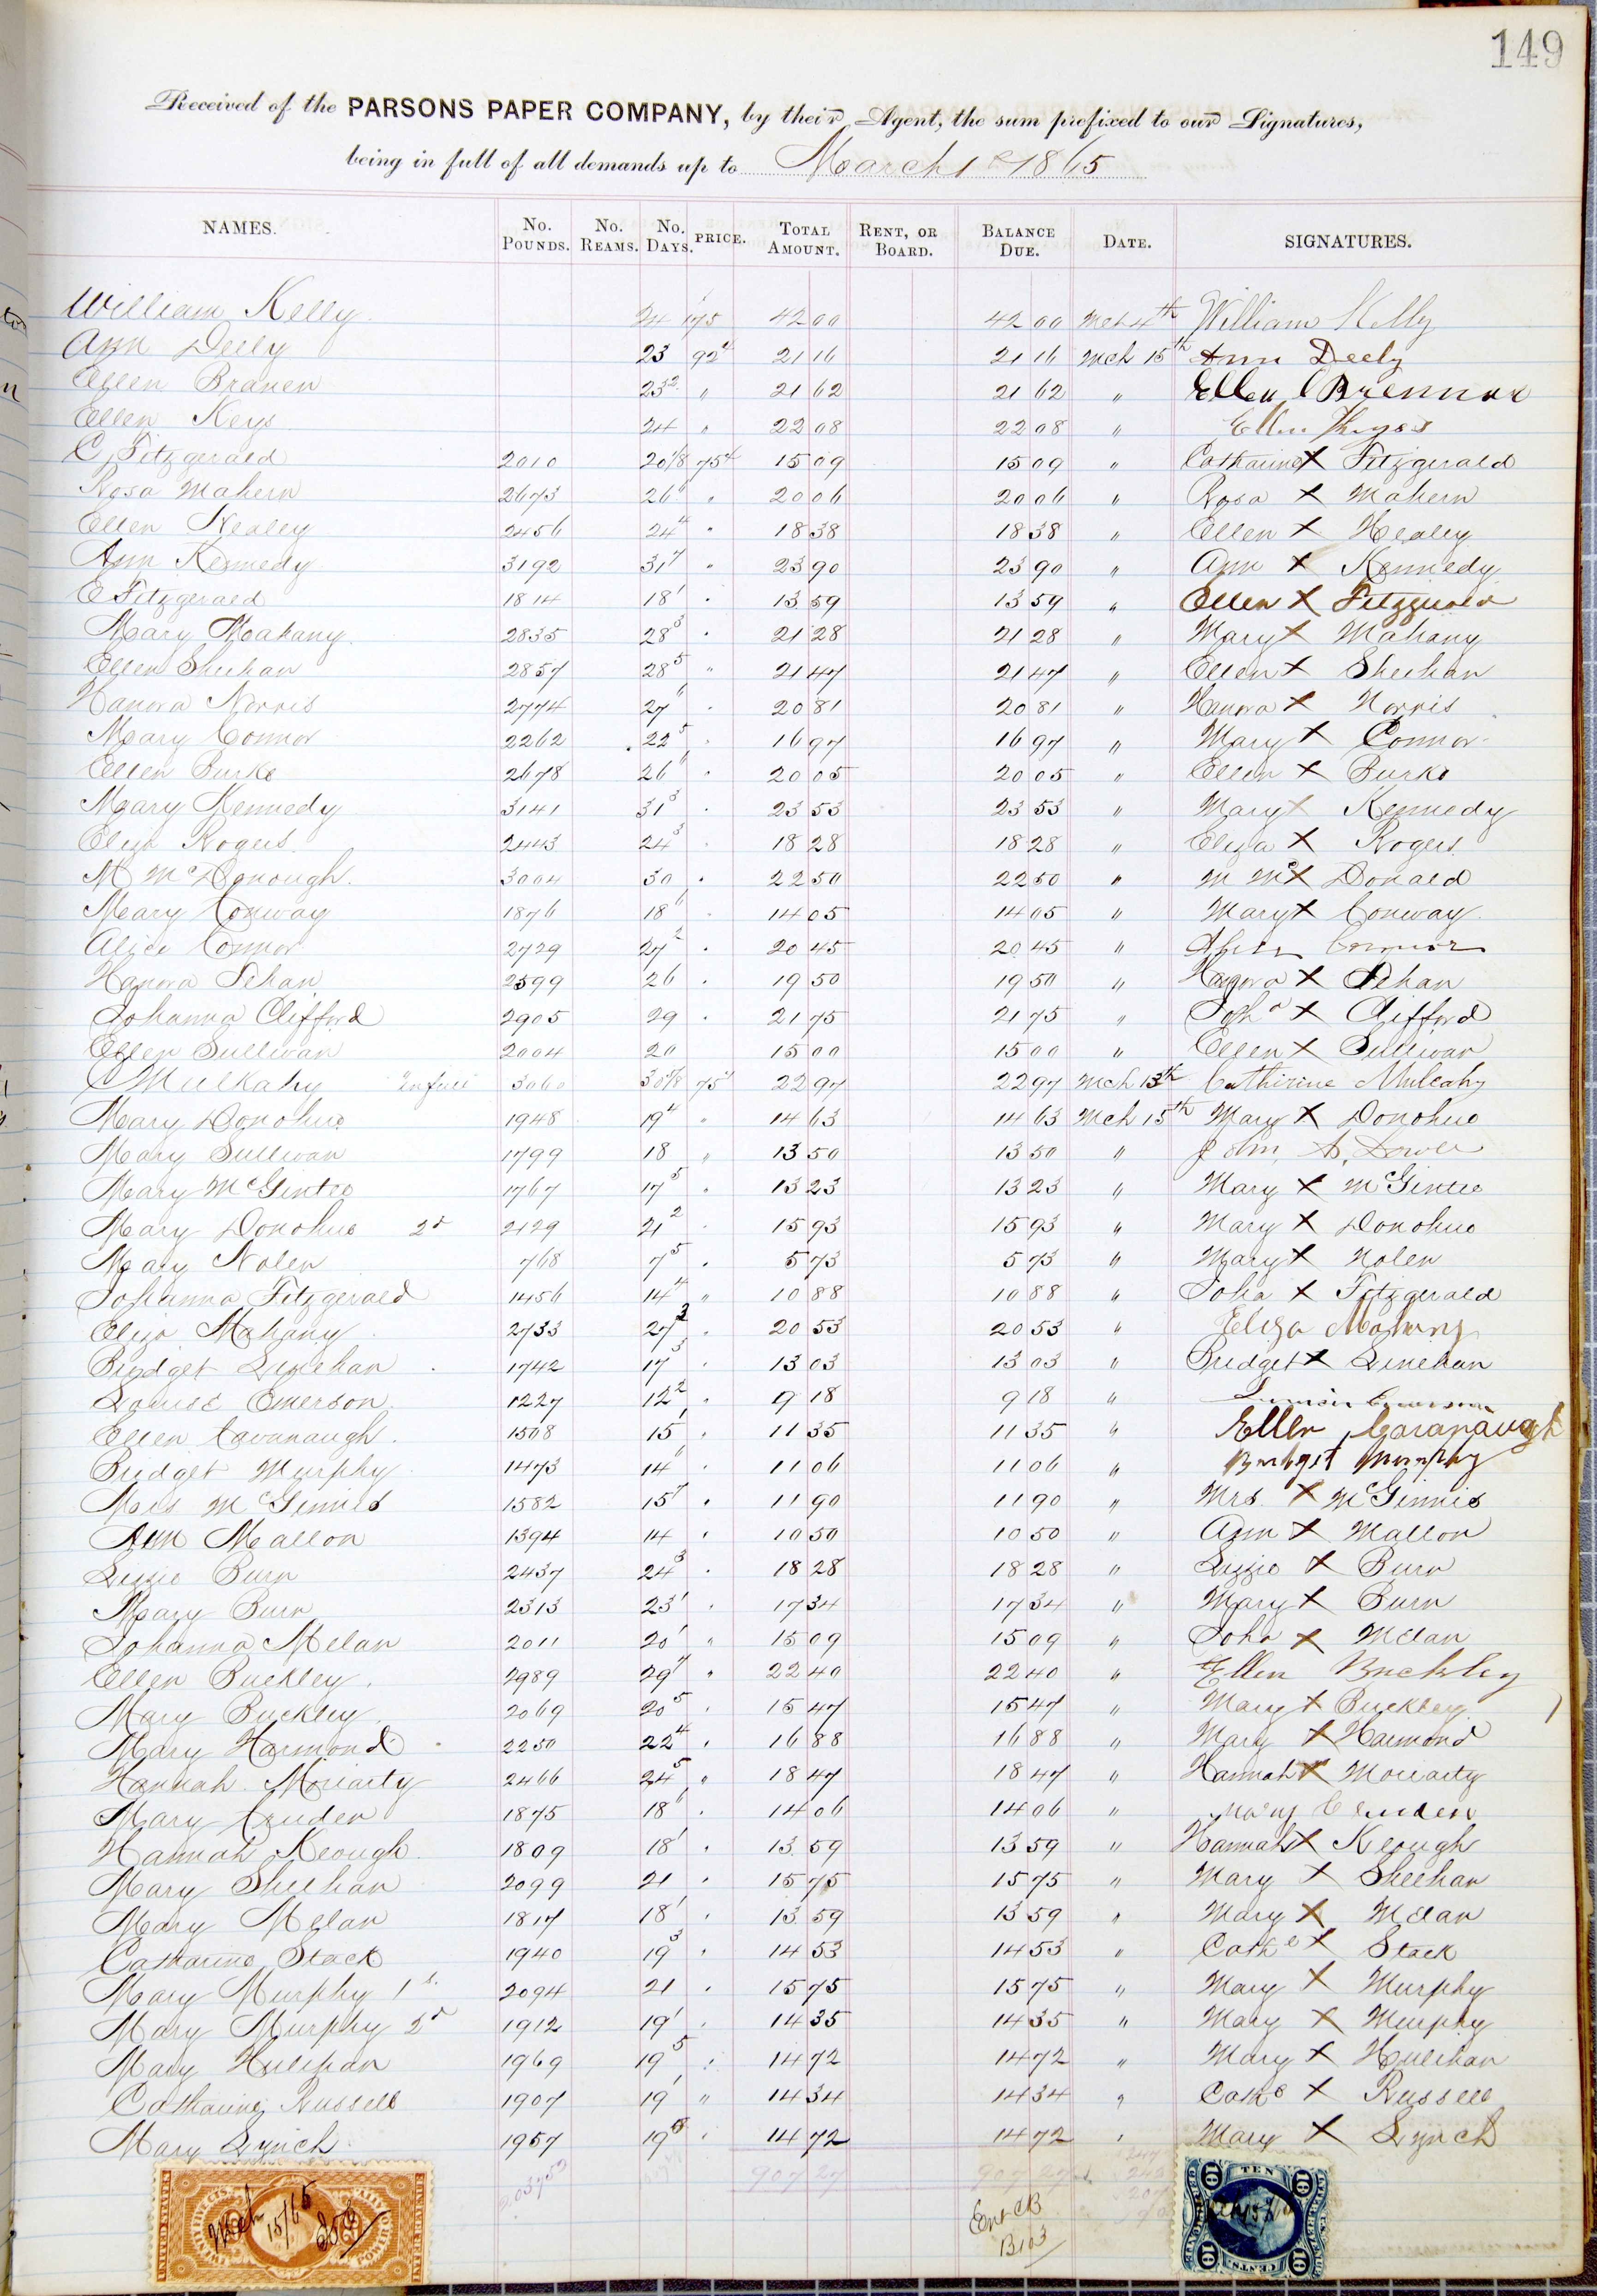 149
Received of the PARSONS PAPER COMPANY, by their Agent, the sum prefixed to our Signatures,
being in full of all demands up to March 1st 1865
NAMES. No. Pounds. No. Reams. No. Days. PRICE. Total Amount. Rent, or Board. Balance Due. Date. SIGNATURES.
William Kelly 24 175 42 00 42 00 Mch 4th William Kelly
Ann Deely 23 92 4 21 16 21 16 Mch 15th Ann Deely
Ellen Branen 23 2 " 21 62 21 62 " Ellen Brennan
Ellen Keys 24 " 22 08 22 08 " Ellen Keyes
C Fitzgerald 2010 20 1/8 75 4 15 09 15 09 " Catharine X Fitzgerald
Rosa Mahern 2673 26 6 " 20 06 20 06 " Rosa X Mahern
Ellen Healey 2456 24 4 " 18 38 18 38 " Ellen X Healey
Ann Kennedy 3192 31 7 " 23 90 23 90 " Ann X Kennedy
E Fitzgerald 1814 18 1 " 13 59 13 59 " Ellen X Fitzgerald
Mary Mahany 2835 28 3 " 21 28 21 28 " Mary X Mahany
Ellen Sheehan 2857 28 5 " 21 47 21 47 " Ellen X Sheehan
Hanora Norris 2774 27 6 " 20 81 20 81 " Hanora X Norris
Mary Connor 2262 22 5 " 16 97 16 97 " Mary X Connor
Ellen Burke 2678 26 6 " 20 05 20 05 " Ellen X Burke
Mary Kennedy 3141 31 3 " 23 53 23 53 " Mary X Kennedy
Eliza Rogers 2443 24 3 " 18 28 18 28 " Eliza X Rogers
M McDonough 3004 30 " 22 50 22 50 " M Mc X Donald
Mary Conway 1876 18 6 " 14 05 14 05 " Mary X Conway
Alice Connor 2729 27 2 " 20 45 20 45 " Connor
Hanora Pehan 2599 26 " 19 50 19 50 " Hanora X Pehan
Johanna Clifford 2905 29 " 21 75 21 75 " Joha X Clifford
Ellen Sullivan 2004 20 15 00 15 00 " Ellen X Sullivan
C Mulkahy "in full" 3060 30 5/8 75 4 22 97 22 97 Mch 13th Catherine Mulcahy
Mary Donohue 1948 19 4 " 14 63 14 63 Mch 15th Mary X Donohue
Mary Sullivan 1799 18 " 13 50 13 50 " John A.
Mary McGintee 1767 17 5 " 13 23 13 23 " Mary X McGintee
Mary Donohue 2d 2129 21 2 " 15 93 15 93 " Mary X Donohue
Mary Nolen 768 7 5 " 5 73 5 73 " Mary X Nolen
Johanna Fitzgerald 1456 14 4 " 10 88 10 88 " Joha X Fitzgerald
Eliza Mahany 2733 27 3 " 20 53 20 53 " Eliza Mahany
Bridget Linehan 1742 17 3 " 13 03 13 03 " Bridget X Linehan
Louise Emerson 1227 12 2 " 9 18 9 18 " Emerson
Ellen Cavanaugh 1508 15 1 " 11 35 11 35 " Ellen Cavanaugh
Bridget Murphy 1473 14 6 " 11 06 11 06 " Bridget Murphy
Mrs McGinnis 1582 15 7 " 11 90 11 90 " Mrs. X McGinnis
Ann Mallon 1394 14 " 10 50 10 50 " Ann X Mallon
Lizzie Burn 2437 24 3 " 18 28 18 28 " Lizzie X Burn
Mary Burn 2313 23 1 " 17 34 17 34 " Mary X Burn
Johanna Melan 2011 20 1 " 15 09 15 09 " Joha X Melan
Ellen Buckley 2989 29 7 " 22 40 22 40 " Ellen Buckley
Mary Buckley 2069 20 5 " 15 47 15 47 " Mary X Buckley
Mary Harmond 2250 22 4 " 16 88 16 88 " Mary X Harmond
Hannah Moriarty 2466 24 5 " 18 47 18 47 " Hannah X Moriarty
Mary Cruden 1875 18 6 " 14 06 14 06 " Mary Cruden
Hannah Keough 1809 18 1 " 13 59 13 59 " Hannah X Keough
Mary Sheehan 2099 21 " 15 75 15 75 " Mary X Sheehan
Mary Melan 1817 18 1 " 13 59 13 59 " Mary X Melan
Catharine Stack 1940 19 3 " 14 53 14 53 " Cathe X Stack
Mary Murphy 1s. 2094 21 " 15 75 15 75 " Mary X Murphy
Mary Murphy 2d 1912 19 1 " 14 35 14 35 " Mary X Murphy
Mary Hulihan 1969 19 5 " 14 72 14 72 " Mary X Hulihan
Catharine Russell 1907 19 1 " 14 34 14 34 " Cathe X Russell
Mary Lynch 1957 19 5 " 14 72 14 72 " Mary X Lynch
203753 907 27 907 27
Ent CB
B103
UNITED STATES INTER REVENUE
Mch 15/65
TEN
10 10
CENTS
10 10